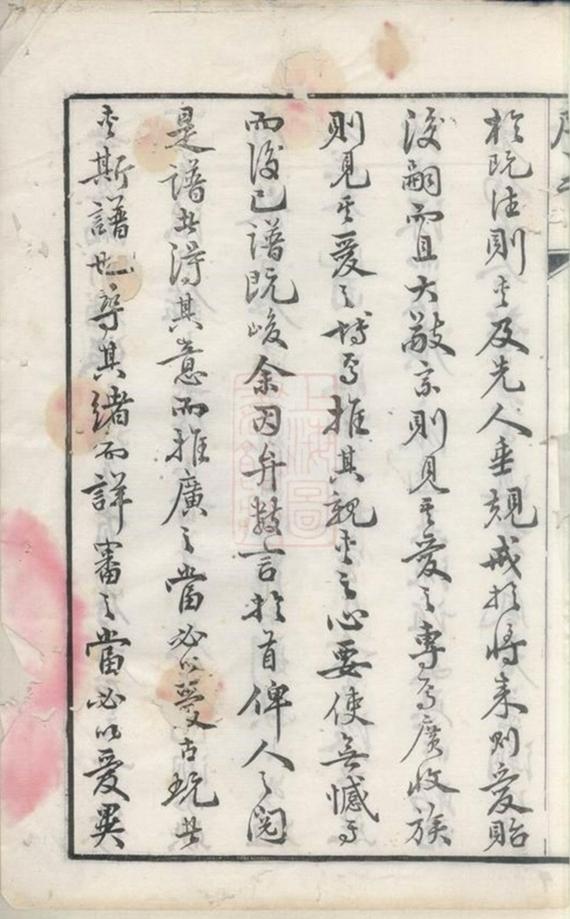 於既往則愛及先人垂規戒於將来則愛貽
後嗣而且大敬宗則見其愛之專焉廣收族
則見其愛之博焉推其親愛之心要使無憾焉
而後已譜既峻余因弁数言於首俾人之閱
是譜者得其意而推廣之當必以愛古玩者
愛斯譜也尋其緒而詳審之當必以愛異